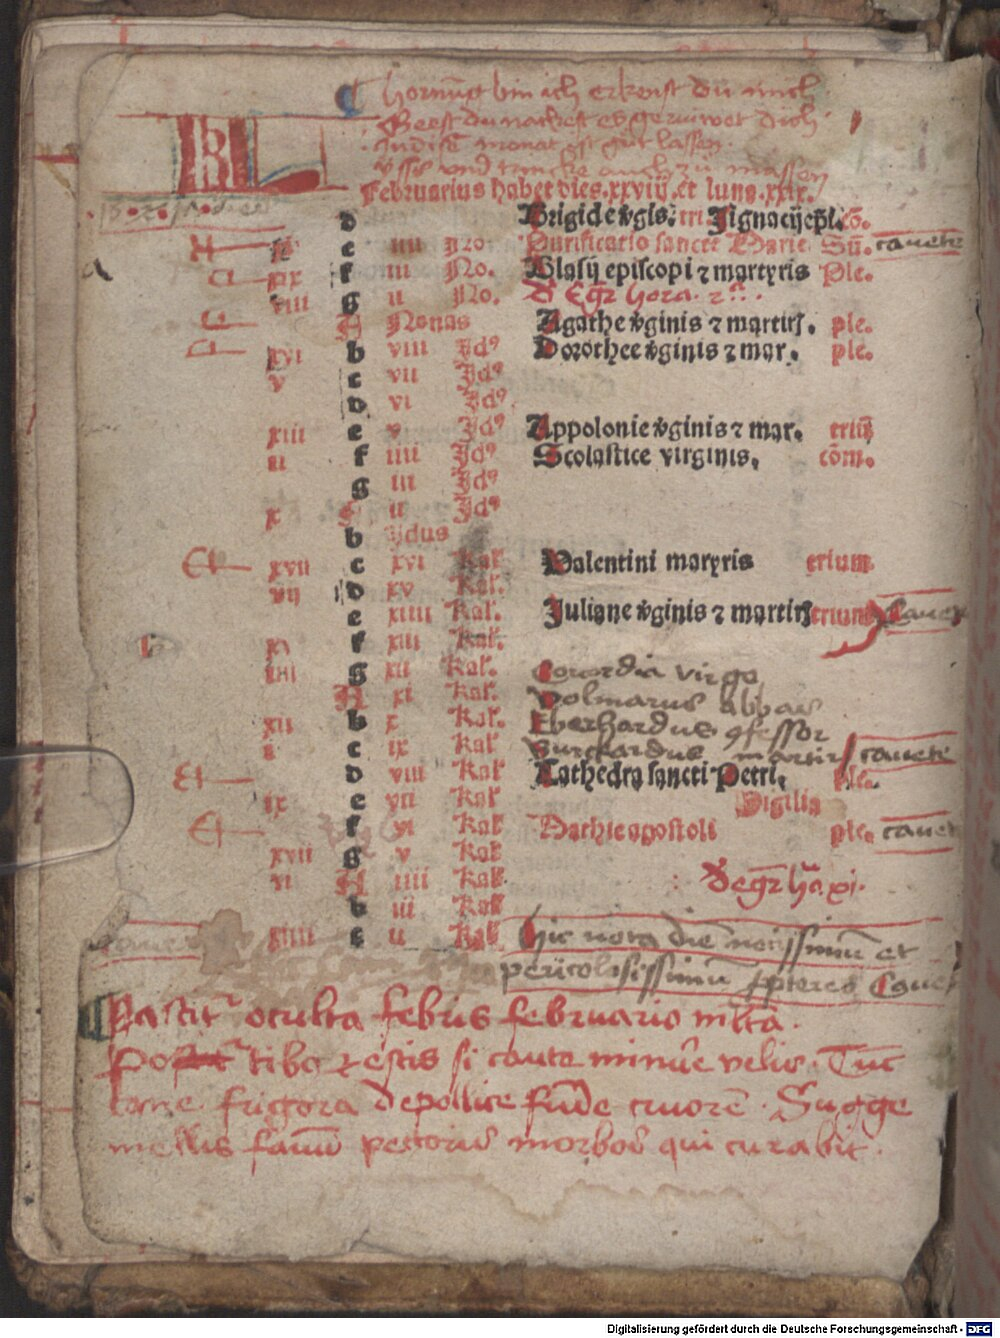 hornūg bin ich erkenst du mich
Geest du nacket es geruwet dich
In disē monat ist gut lassen
und auch zu massen
KL
Februarius habet dies.xxviij.et luna.xxix.
d Brigide v̄gis. Ignacij ep̄i. cō.
e iiii No. Purificatio sancte Marie Sū. cauete
xix f iii No. Blasij episcopi ⁊ martyris Ple.
viii g ii No.
A Nonas Agathe v̄ginis ⁊ martirꝭ. ple.
xvi b viii Idꝰ Dorothee v̄ginis ⁊ mar. ple.
v c vii Idꝰ
D vi Idꝰ
xiii e v Idꝰ Appolonie v̄ginis ⁊ mar. triū
ii f iiii Idꝰ Scolastice virginis. cōm.
g iii Idꝰ
x A ii Idꝰ
b ijdus
xvii c xvi Kal. Valentini maryris trium
vij D xv Kal.
e xiiii Kal. Juliane v̄ginis ⁊ martirꝭ trium cauete
f xiii Kal.
iiii g xii Kal. Concordia virgo
A xi Kal. Volmarus abbas
xii b x Kal. Eberhardus ꝯfessor
i c ix Kal Burckardus martir cauete
D viii Kal Kathedra sancti Petri. Ple.
ix e vii Kal Vigilia
f vi Kal Mathie apostoli ple. cauete
xvii g v Kal
vi A iiii Kal
b iii Kal
xiiii c ii Kal hic nota diē notissimū et
periculosissimū cauete
Pascitʳ occulta febris februario mltā.
Po tibꝯ ⁊ estis si caute minūe velis. Tūc
cane frigora de pollice funde cruorē. Sugge
mellis favū pectoris morbos qui curabit.
Digitalisierung gefördert durch die Deutsche Forschungsgemeinschaft - DFG